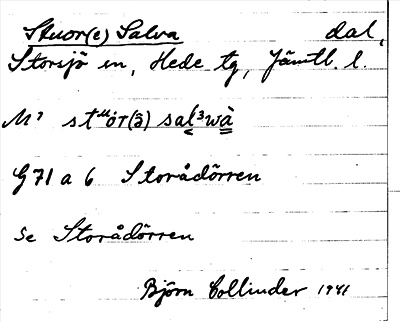 Stuor(e) Salva dal,
Storsjö sn, Hede tg, Jämtl. l.
M² stᵘor(ʒ) sal³wà
G 71 a 6 Storådörren
Se Storådörren
Björn Collinder 1941